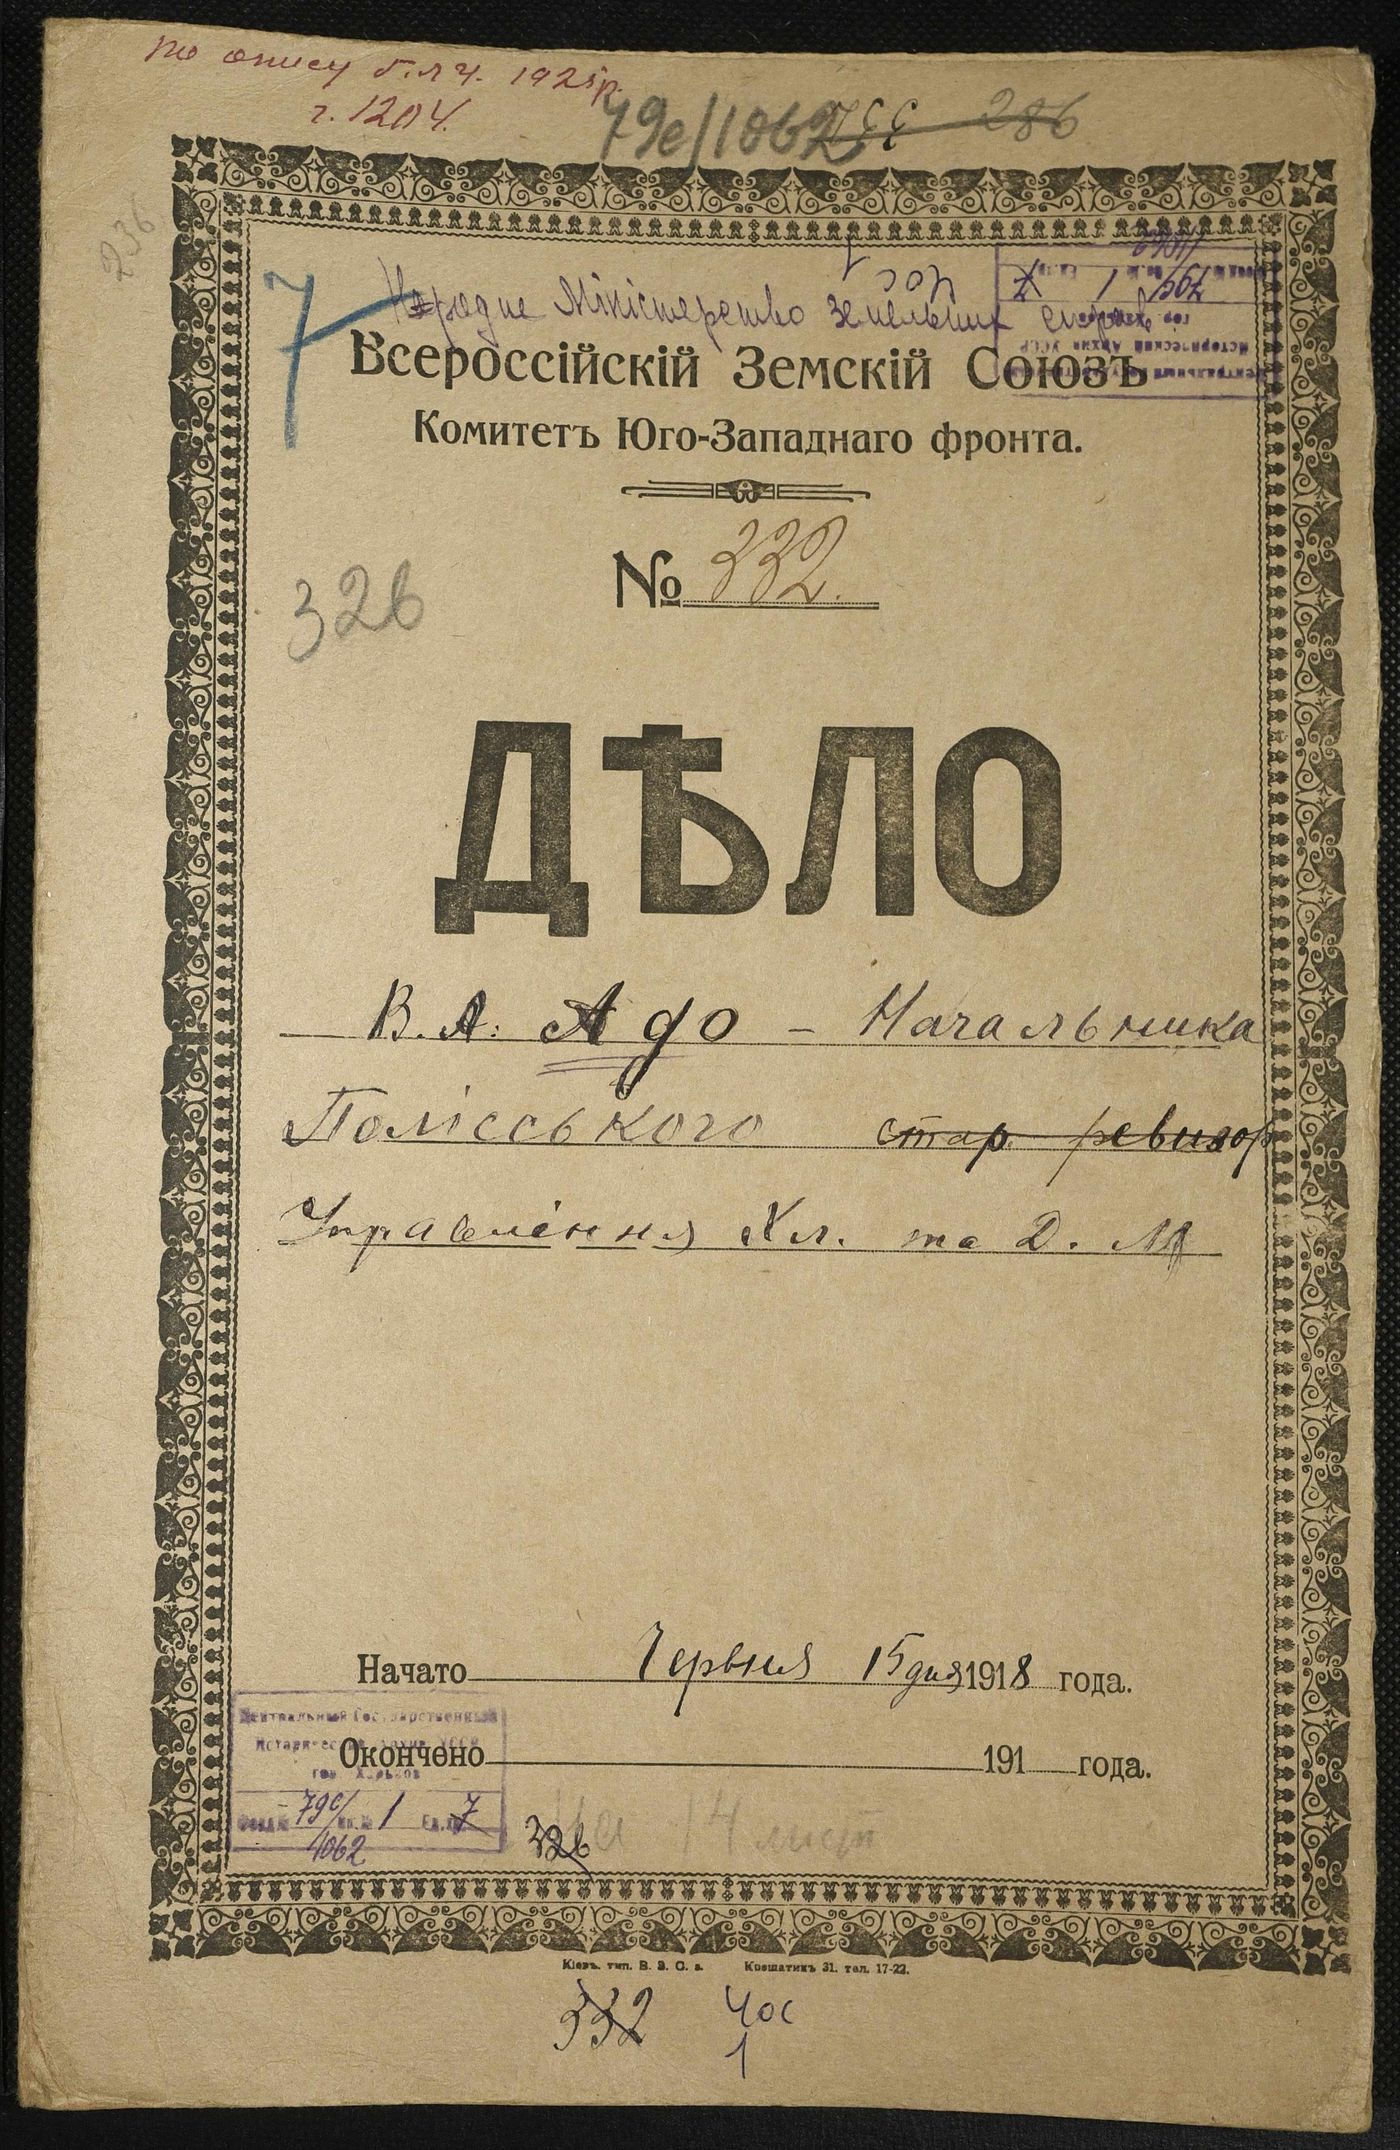 по опису 1925 р.
ч. 1204.
79е/1062 286
236
7
Народне Міністерство земельних справ
Всероссійскій Земскій Союзъ
Комитетъ Юго-Западнаго фронта.
№ 332.
326
ДѢЛО
В. А. Адо – Начальника
Поліського стар. ревизор
Управління Хл. та Д. М
Начато Червня 15 дня 1918 года.
Центральный Государственный
Исторический Архив УССР
гор. Харьков
Окончено 191 года.
Фонд № 79е/1062 оп. № 1 Ед. хр. 7
326 На 14 лист
Кіевъ. тип. В. З. С. а. Крещатикъ 31. тел. 17-22.
332 Чос
1